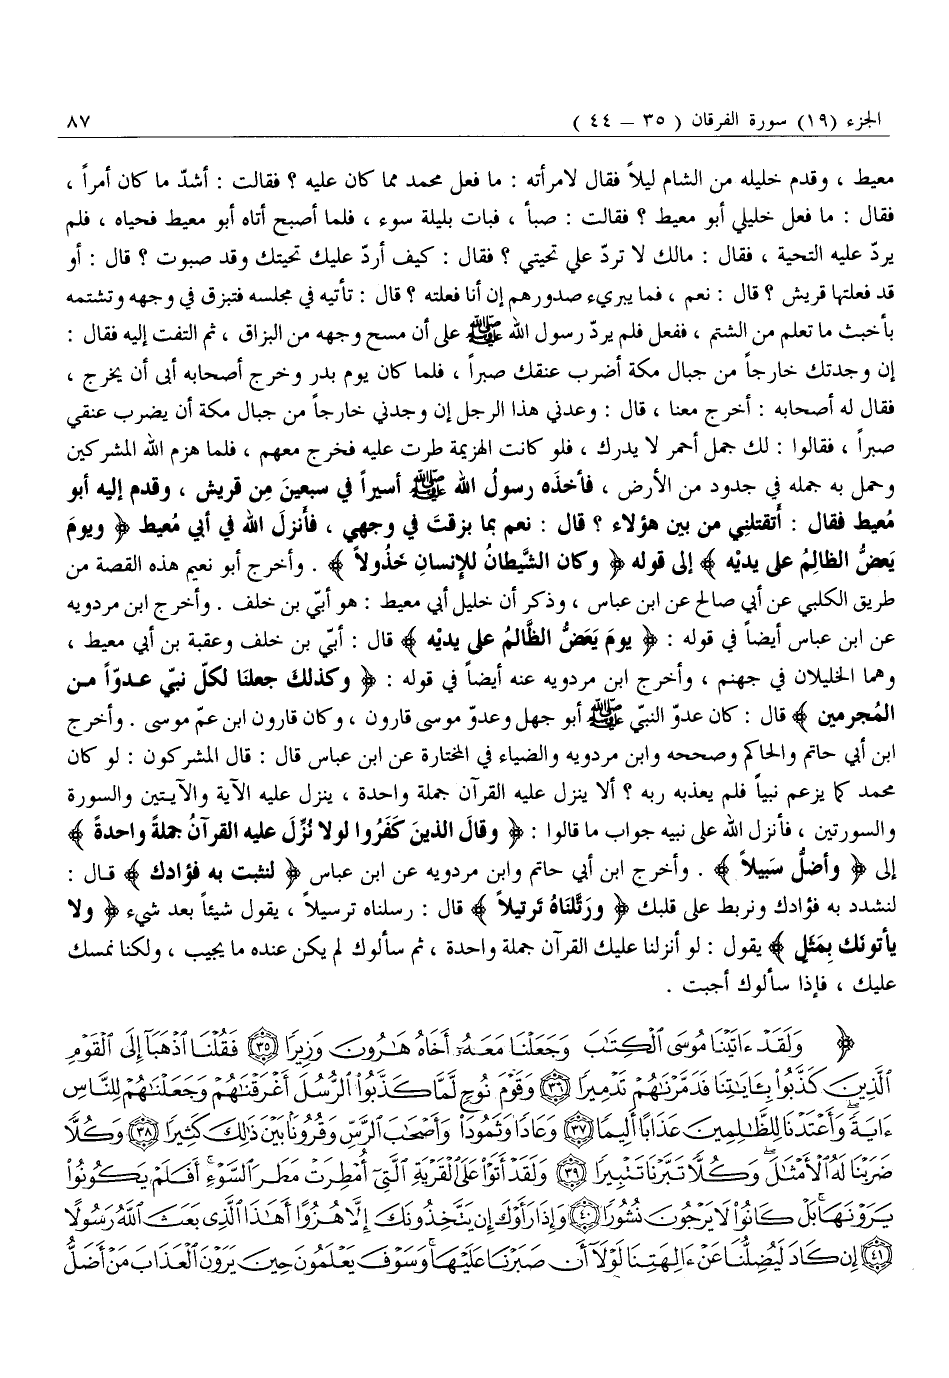 الجزء (١٩) سورة الفرقان ( ٣٥ – ٤٤ ) ٨٧
معيط ، وقدم خليله من الشام ليلاً فقال لامرأته : ما فعل محمد مما كان عليه ؟ فقالت : أشدّ ما كان أمراً ،
فقال : ما فعل خليلي أبو معيط ؟ فقالت : صبأ ، فبات بليلة سوء ، فلما أصبح أتاه أبو معيط فحياه ، فلم
يردّ عليه التحية ، فقال : مالك لا تردّ علي تحيتي ؟ فقال : كيف أردّ عليك تحيتك وقد صبوت ؟ قال : أو
قد فعلتها قريش ؟ قال : نعم ، فما يبريء صدورهم إن أنا فعلته ؟ قال : تأتيه في مجلسه فتبزق في وجهه وتشتمه
بأخبث ما تعلم من الشتم ، ففعل فلم يردّ رسول الله ﷺ على أن مسح وجهه من البزاق ، ثم التفت إليه فقال :
إن وجدتك خارجاً من جبال مكة أضرب عنقك صبراً ، فلما كان يوم بدر وخرج أصحابه أبى أن يخرج ،
فقال له أصحابه : أخرج معنا ، قال : وعدني هذا الرجل إن وجدني خارجاً من جبال مكة أن يضرب عنقي
صبراً ، فقالوا : لك جمل أحمر لا يدرك ، فلو كانت الهزيمة طرت عليه فخرج معهم ، فلما هزم الله المشركين
وحمل به جمله في جدود من الأرض ، فأخذَه رسولُ الله ﷺ أسيراً في سبعينَ مِن قريش ، وقدم إليه أبو
مُعيط فقال : أَتقتلنِي من بين هؤلاء ؟ قال : نعم بما بزقتَ في وجهي ، فأَنزلَ الله في أبي مُعيط ﴿ ويومَ
يَعضُّ الظالِمُ على يديْه ﴾ إلى قوله ﴿ وكان الشَّيطانُ للإنسانِ خَذُولاً ﴾ . وأخرج أبو نعيم هذه القصة من
طريق الكلبي عن أبي صالح عن ابن عباس ، وذكر أن خليل أبي معيط : هو أبيّ بن خلف . وأخرج ابن مردويه
عن ابن عباس أيضاً في قوله : ﴿ يومَ يَعَضُّ الظَّالمُ على يديْه ﴾ قال : أبيّ بن خلف وعقبة بن أبي معيط ،
وهما الخليلان في جهنم ، وأخرج ابن مردويه عنه أيضاً في قوله : ﴿ وكذلك جعلنَا لكلّ نبيّ عدوّاً من
المُجرمين ﴾ قال : كان عدوّ النبيّ ﷺ أبو جهل وعدوّ موسى قارون ، وكان قارون ابن عمّ موسى . وأخرج
ابن أبي حاتم والحاكم وصححه وابن مردويه والضياء في المختارة عن ابن عباس قال : قال المشركون : لو كان
محمد كما يزعم نبياً فلم يعذبه ربه ؟ ألا ينزل عليه القرآن جملة واحدة ، ينزل عليه الآية والآيتين والسورة
والسورتين ، فأنزل الله على نبيه جواب ما قالوا : ﴿ وقالَ الذينَ كفَرُوا لولا نُزِّلَ عليه القرآنُ جُملةً واحدةً ﴾
إلى ﴿ وأضلُّ سَبيلاً ﴾ . وأخرج ابن أبي حاتم وابن مردويه عن ابن عباس ﴿ لنثبت به فؤادك ﴾ قال :
لنشدد به فؤادك ونربط على قلبك ﴿ ورتَّلنَاهُ تَرتيلاً ﴾ قال : رسلناه ترسيلاً ، يقول شيئاً بعد شيء ﴿ ولا
يأتونَك بِمَثَلٍ ﴾ يقول : لو أنزلنا عليك القرآن جملة واحدة ، ثم سألوك لم يكن عنده ما يجيب ، ولكنا نمسك
عليك ، فإذا سألوك أجبت .
﴿ وَلَقَدْ ءَاتَيْنَا مُوسَى ٱلْكِتَٰبَ وَجَعَلْنَا مَعَهُۥٓ أَخَاهُ هَٰرُونَ وَزِيرًا ٣٥ فَقُلْنَا ٱذْهَبَآ إِلَى ٱلْقَوْمِ
ٱلَّذِينَ كَذَّبُوا۟ بِـَٔايَٰتِنَا فَدَمَّرْنَٰهُمْ تَدْمِيرًا ٣٦ وَقَوْمَ نُوحٍ لَّمَّا كَذَّبُوا۟ ٱلرُّسُلَ أَغْرَقْنَٰهُمْ وَجَعَلْنَٰهُمْ لِلنَّاسِ
ءَايَةً ۖ وَأَعْتَدْنَا لِلظَّٰلِمِينَ عَذَابًا أَلِيمًا ٣٧ وَعَادًا وَثَمُودَا۟ وَأَصْحَٰبَ ٱلرَّسِّ وَقُرُونًۢا بَيْنَ ذَٰلِكَ كَثِيرًا ٣٨ وَكُلًّا
ضَرَبْنَا لَهُ ٱلْأَمْثَٰلَ ۖ وَكُلًّا تَبَّرْنَا تَتْبِيرًا ٣٩ وَلَقَدْ أَتَوْا۟ عَلَى ٱلْقَرْيَةِ ٱلَّتِىٓ أُمْطِرَتْ مَطَرَ ٱلسَّوْءِ ۚ أَفَلَمْ يَكُونُوا۟
يَرَوْنَهَا ۚ بَلْ كَانُوا۟ لَا يَرْجُونَ نُشُورًا ٤٠ وَإِذَا رَأَوْكَ إِن يَتَّخِذُونَكَ إِلَّا هُزُوًا أَهَٰذَا ٱلَّذِى بَعَثَ ٱللَّهُ رَسُولًا
٤١ إِن كَادَ لَيُضِلُّنَا عَنْ ءَالِهَتِنَا لَوْلَآ أَن صَبَرْنَا عَلَيْهَا ۚ وَسَوْفَ يَعْلَمُونَ حِينَ يَرَوْنَ ٱلْعَذَابَ مَنْ أَضَلُّ